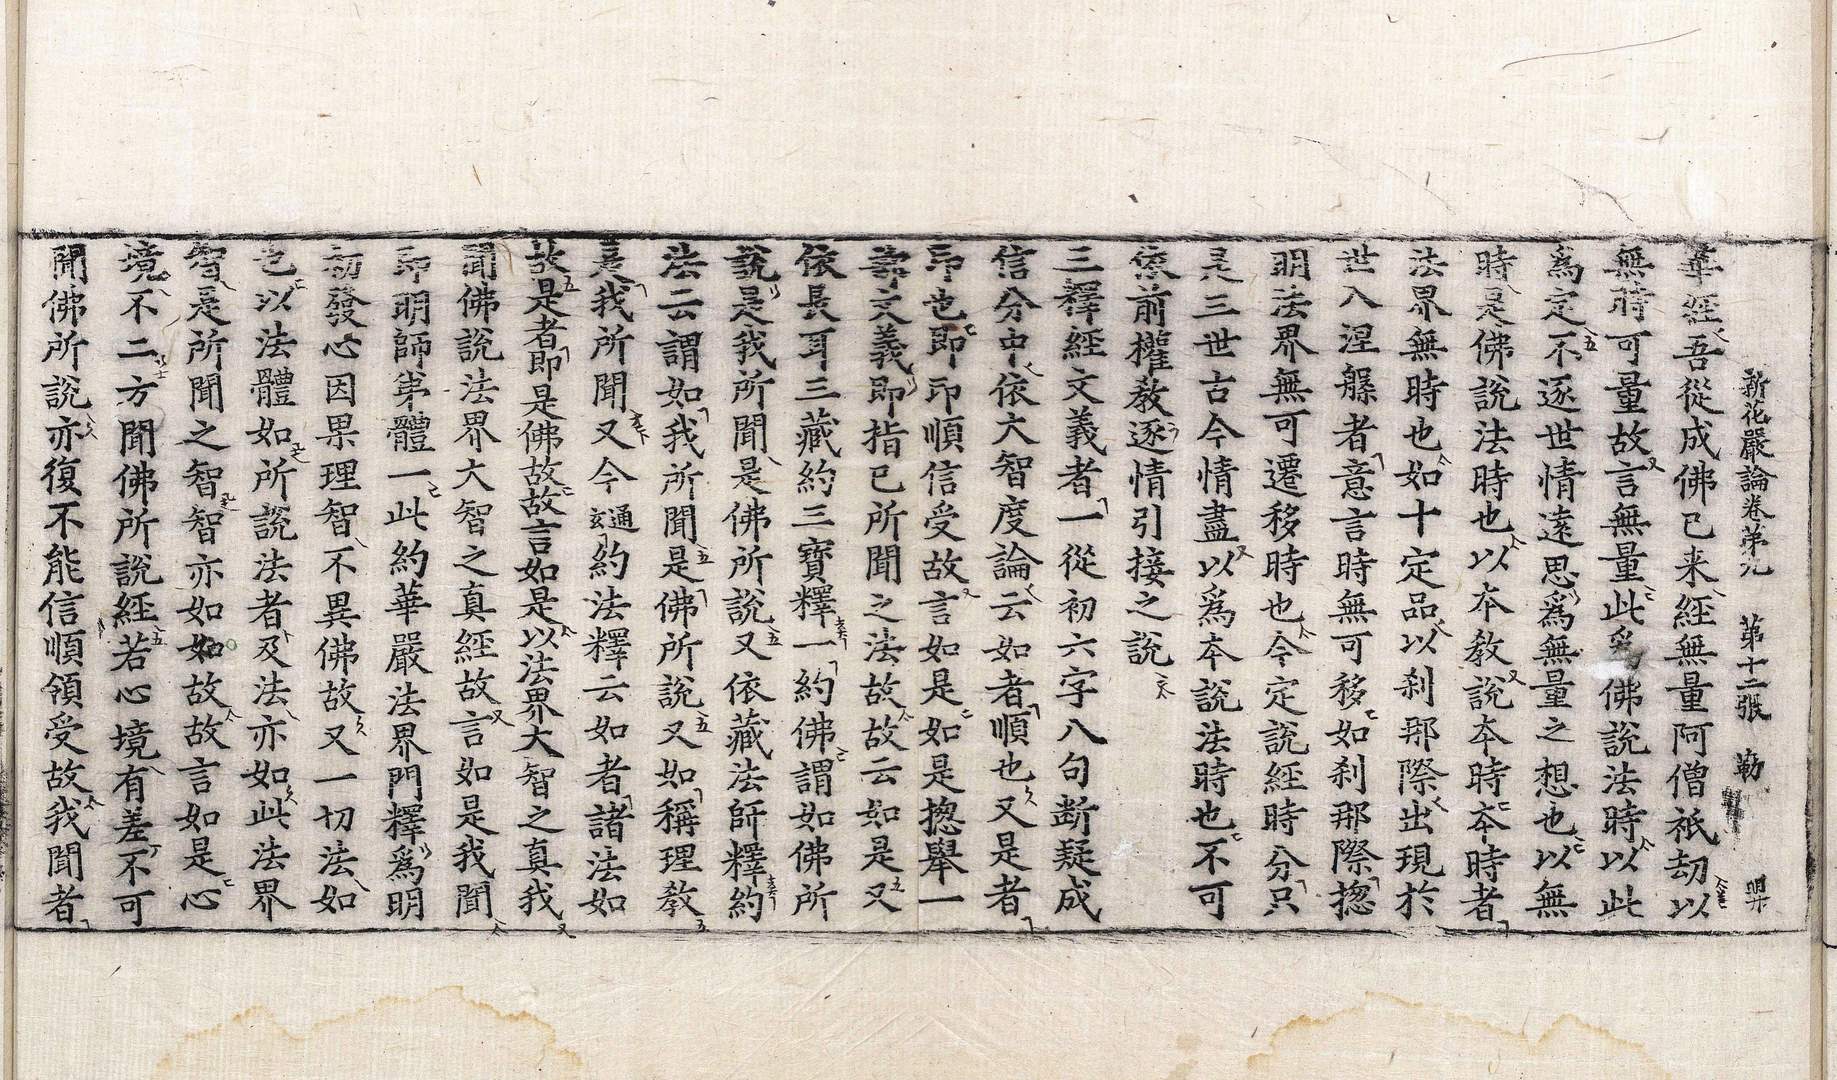 新花嚴論卷第九　第十二張　勒　㒷
華經吾從成佛已来經無量阿僧祇劫以
無時可量故言無量此爲佛說法時以此
爲定不逐世情遠思爲無量之想也以無
時是佛說法時也以本教說本時本時者
法界無時也如十定品以刹那際出現於
世入涅槃者意言時無可移如刹那際揔
明法界無可遷移時也今定說經時分只
是三世古今情盡以爲本說法時也不可
依前權教逐情引接之說
三釋經文義者一從初六字八句断疑成
信分中依大智度論云如者順也又是者
印也即印順信受故言如是如是揔舉一
部之義即指已所聞之法故故云如是又
依長耳三藏約三寶釋一約佛謂如佛所
說是我所聞是佛所說又依藏法師釋約
法云謂如我所聞是佛所說又如稱理教
是我所聞又今通玄約法釋云如者諸法如
故是者即是佛故故言如是以法界大智之真我
聞佛說法界大智之真經故言如是我聞
即明師弟體一此約華嚴法界門釋爲明
初發心因果理智不異佛故又一切法如
也以法體如所說法者及法亦如此法界
智是所聞之智智亦如如故故言如是心
境不二方聞佛所說經若心境有差不可
聞佛所說亦復不能信順領受故我聞者